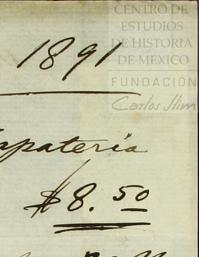 CENTRO DE
ESTUDIOS
DE HISTORIA
DE MEXICO
FUNDACIÓN
Carlos Slim
1891
apateria
$8.50